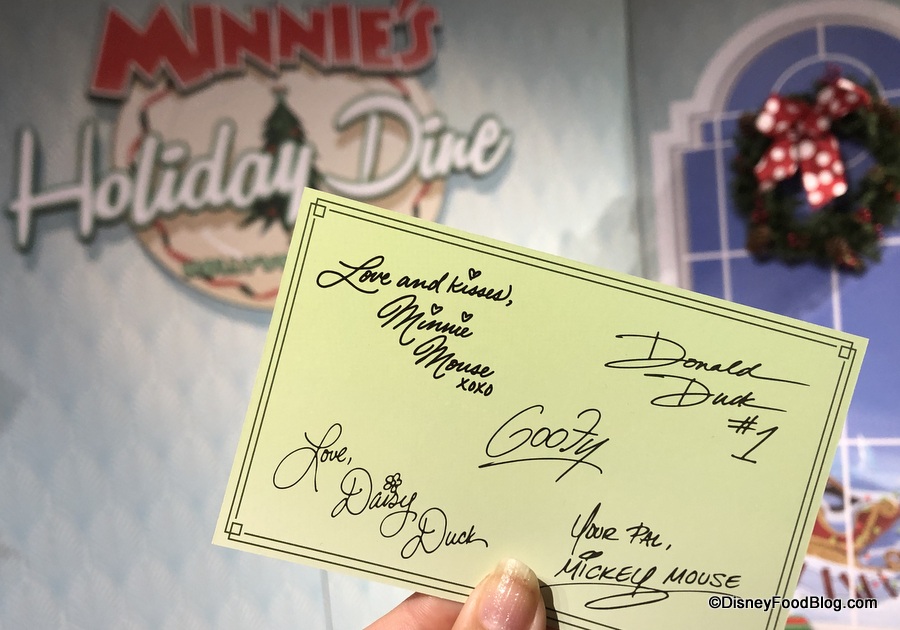 MINNIE'S
Holiday Dine
Love and kisses,
Minnie
Mouse
xoxo
Donald
Duck
#1
Goofy
Love,
Daisy
Duck
Your Pal,
Mickey Mouse
©DisneyFoodBlog.com